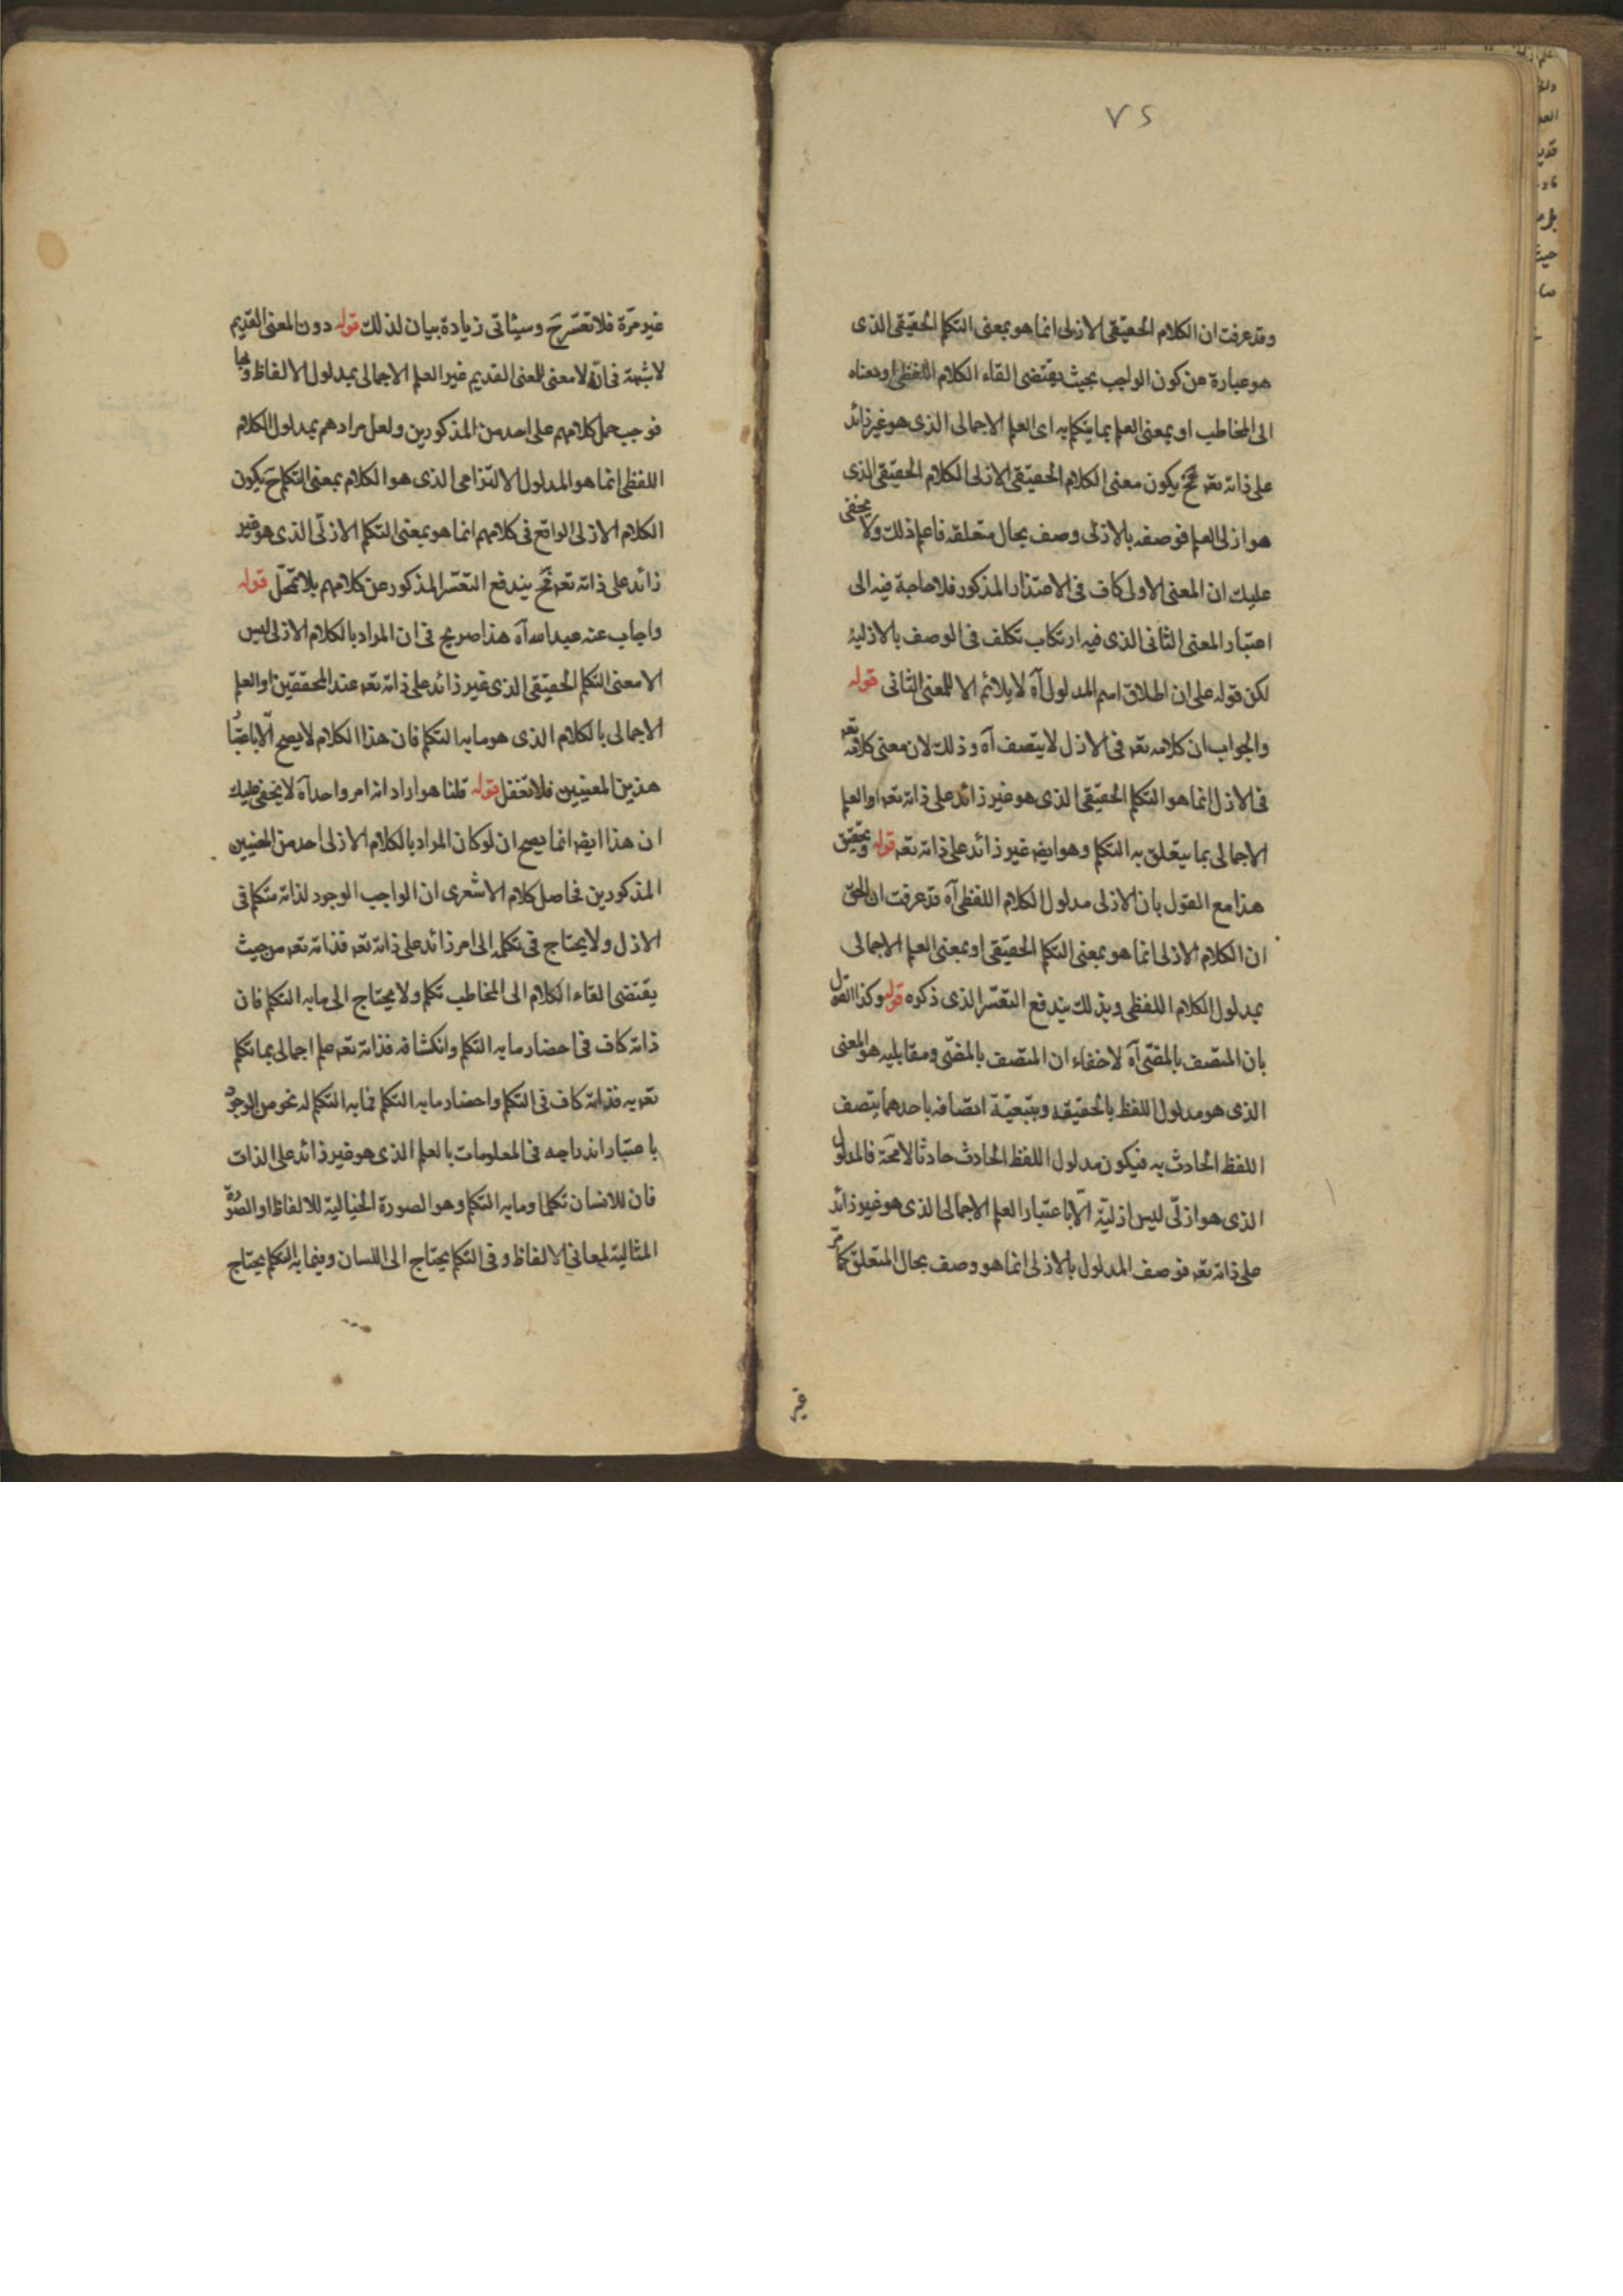 ٧٢
وقد عرفت ان الكلام الحقيقى الازلى انما هو بمعنى التكلم الحقيقى الذى
هو عبارة عن كون الواجب بحيث يقتضى القاء الكلام اللفظى او معناه
الى المخاطب او بمعنى العلم بما يتكلم به اى العلم الاجمالى الذى هو غير زائد
على ذاته تعه فح يكون معنى الكلام الحقيقى الازلى الكلام الحقيقى الذى
هو ازلى العلم فوصفه بالازلى وصف بحال متعلقه فاعلم ذلك ولا يخفى
عليك ان المعنى الاول كاف فى الاعتذار المذكور فلا حاجة فيه الى
اعتبار المعنى الثانى الذى فيه ارتكاب تكلف فى الوصف بالازلية
لكن قوله على ان اطلاق اسم المدلول آه لا يلائم الا للمعنى الثانى قوله
والجواب ان كلامه تعه فى الازل لا يتصف آه وذلك لان معنى كلامه تعه
فى الازل انما هو التكلم الحقيقى الذى هو غير زائد على ذاته تعه او العلم
الاجمالى بما يتعلق به التكلم وهو ايضه غير زائد على ذاته تعه قوله وتحقيق
هذا مع القول بان الازلى مدلول الكلام اللفظى آه قد عرفت ان الحق
ان الكلام الازلى انما هو بمعنى التكلم الحقيقى او بمعنى العلم الاجمالى
بمدلول الكلام اللفظى وبذلك يندفع التعسّر الذى ذكره قوله وكذا القول
بان المتصف بالمضىّ آه لا خفاء ان المتصف بالمضىّ ومقابليه هو المعنى
الذى هو مدلول اللفظ بالحقيقه وبتبعيّة اتصافه باحدهما يتصف
اللفظ الحادث به فيكون مدلول اللفظ الحادث حادثا لا محة فالمدلول
الذى هو ازلىّ ليس ازليّة الّا باعتبار العلم الاجمالى الذى هو غير زائد
على ذاته تعه فوصف المدلول بالازلى انما هو وصف بحال المتعلق كما مرّ
غير
غير مرّة فلا تعسّر ح وسيئاتى زيادة بيان لذلك قوله دون المعنى القديم
لا شبهة فى انّه لا معنى للمعنى القديم غير العلم الاجمالى بمدلول الالفاظ وبها
فوجب حمل كلامهم على احد من المذكورين ولعل مرادهم بمدلول الكلام
اللفظى انما هو المدلول الالتزامى الذى هو الكلام بمعنى التكلم ح يكون
الكلام الازلى الواقع فى كلامهم انما هو بمعنى التكلم الازلّى الذى هو غير
زائد على ذاته تعه فح يندفع التعسّر المذكور عن كلامهم بلا تمحّل قوله
واجاب عنه عبد الله آه هذا صريح فى ان المراد بالكلام الازلى ليس
الا معنى التكلم الحقيقى الذى غير زائد على ذاته تعه عند المحققين او العلم
الاجمالى بالكلام الذى هو ما به التكلم فان هذا الكلام لا يصح الّا باعتبار
هذين المعنيين فلا تغفل قوله قلنا هو اراد انه امر واحد آه لا يخفى عليك
ان هذا ايضه انما يصح ان لو كان المراد بالكلام الازلى احد من المعنيين
المذكورين فحاصل كلام الاشعرى ان الواجب الوجود لذاته متكلم فى
الازل ولا يحتاج فى تكلمه الى امر زائد على ذاته تعه فذاته تعه من حيث
يقتضى القاء الكلام الى المخاطب تكلم ولا يحتاج الى ما به التكلم فان
ذاته كاف فى احضار ما به التكلم وانكشافه فذاته تعه علم اجمالى بما تكلم
تعه به فذاته كاف فى التكلم واحضار ما به التكلم فما به التكلم له نحو من الوجود
باعتبار اندراجه فى المعلومات بالعلم الذى هو غير زائد على الذات
فان للانسان تكلما وما به التكلم وهو الصورة الخيالية للالفاظ او الصورة
المثالية لمعانى الالفاظ وفى التكلم يحتاج الى اللسان وفيما به التكلم يحتاج